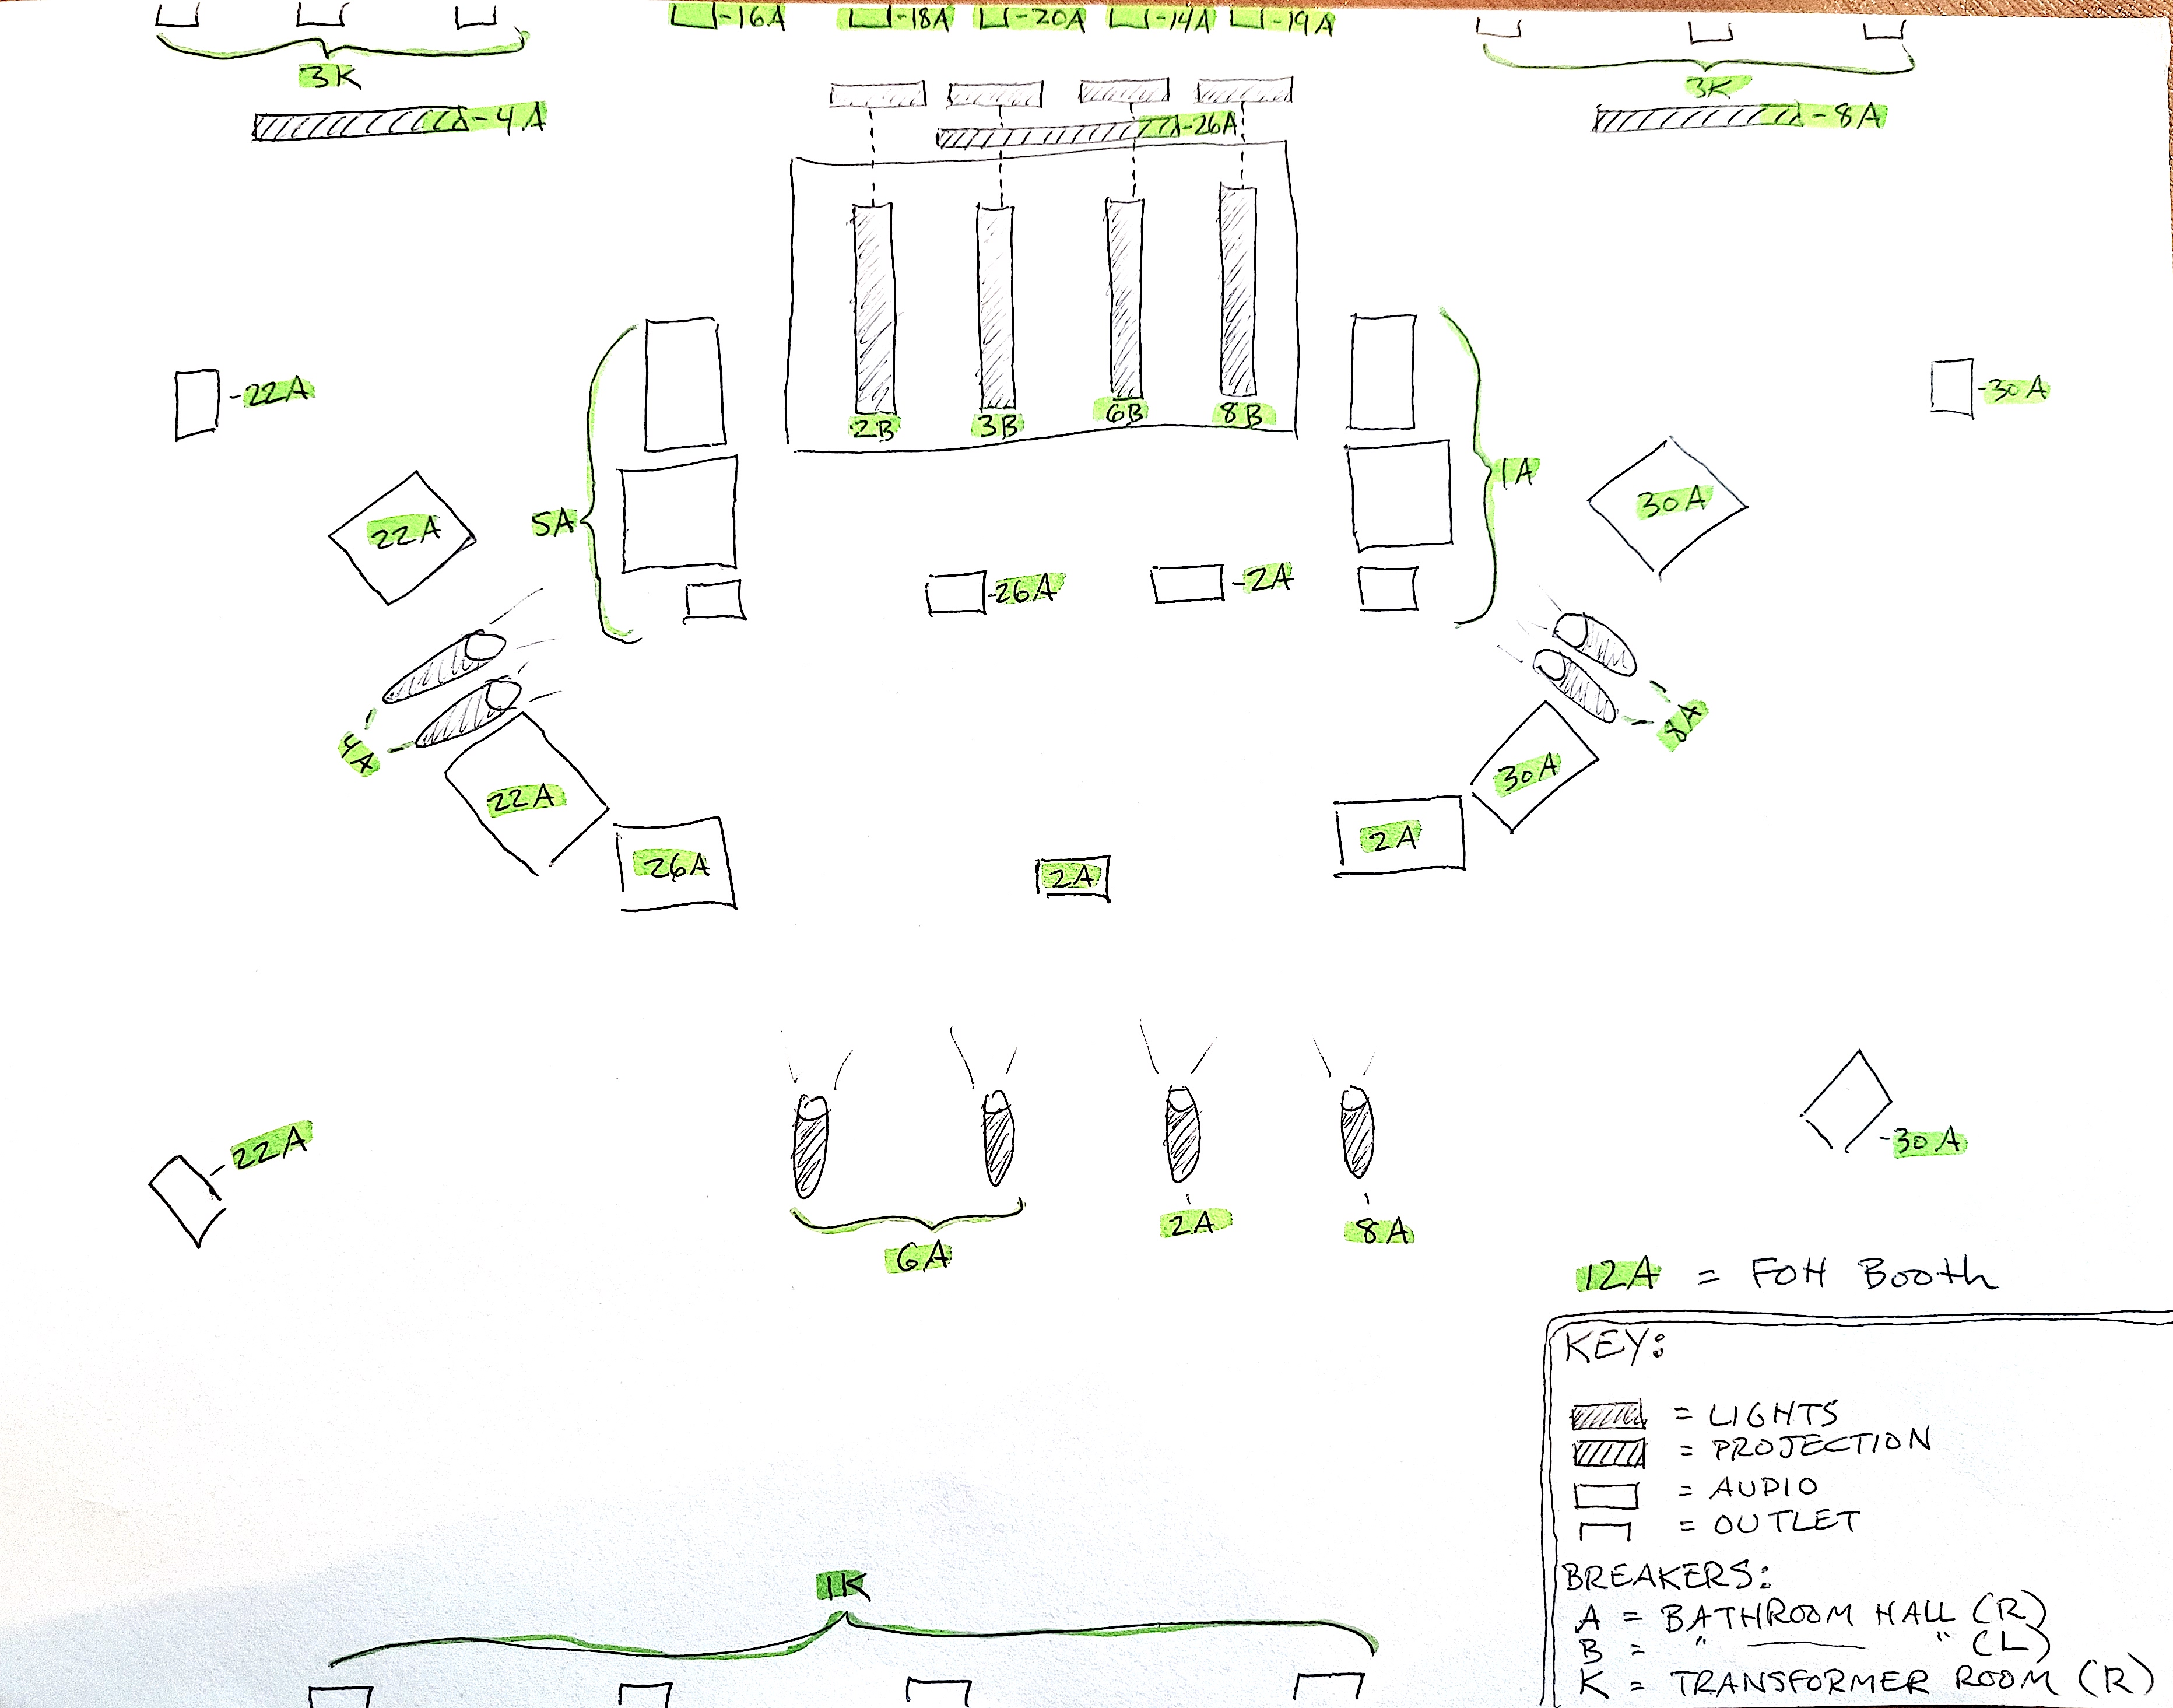 -16A -18A -20A -14A -19A
3K
3K
-4A
-26A
-8A
-22A
2B
3B
6B
8B
-30A
22A
5A
1A
30A
-26A
-2A
4A
8A
22A
30A
26A
2A
2A
22A
-30A
6A
2A
8A
12A = FOH Booth
KEY:
= LIGHTS
= PROJECTION
= AUDIO
= OUTLET
1K
BREAKERS:
A = BATHROOM HALL (R)
B = " —— " (L)
K = TRANSFORMER ROOM (R)